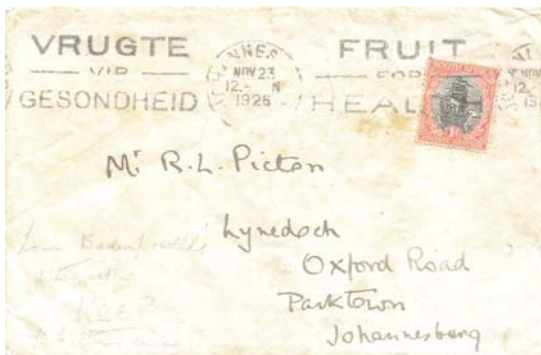 VRUGTE
VIR
GESONDHEID
NOV 23
12.- N
1926
FRUIT
FOR
HEAL
1D
Mr R.L. Picton
Lynedoch
Oxford Road
Parktown
Johannesburg